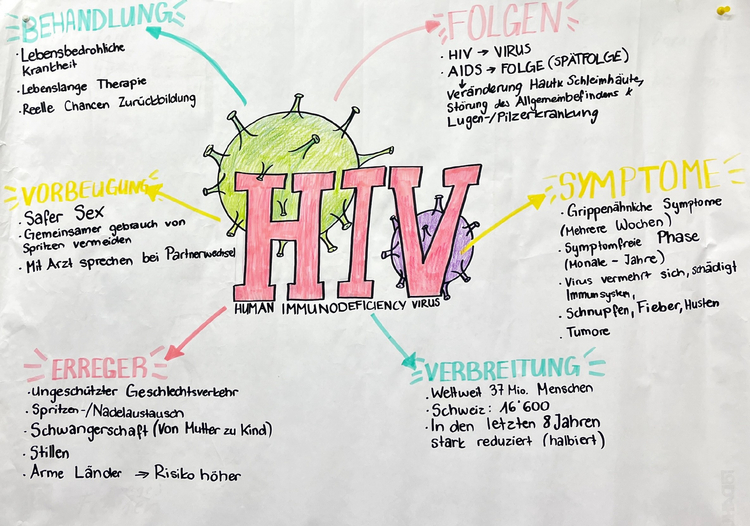 BEHANDLUNG
· Lebensbedrohliche
Krankheit
· Lebenslange Therapie
· Reelle Chancen Zurückbildung
FOLGEN
· HIV → VIRUS
· AIDS → FOLGE (SPÄTFOLGE)
↓
Veränderung Haut & Schleimhäute,
Störung des Allgemeinbefindens &
Lugen-/Pilzerkrankung
VORBEUGUNG
· Safer Sex
· Gemeinsamer gebrauch von
Spritzen vermeiden
· Mit Arzt sprechen bei Partnerwechsel
HIV
HUMAN IMMUNODEFICIENCY VIRUS
SYMPTOME
· Grippenähnliche Symptome
(Mehrere Wochen)
· Symptomfreie Phase
(Monate - Jahre)
· Virus vermehrt sich, schädigt
Immunsystem,
· Schnupfen, Fieber, Husten
· Tumore
ERREGER
· Ungeschützter Geschlechtsverkehr
· Spritzen-/Nadelaustausch
· Schwangerschaft (Von Mutter zu Kind)
· Stillen
· Arme Länder → Risiko höher
VERBREITUNG
· Weltweit 37 Mio. Menschen
· Schweiz: 16'600
· In den letzten 8 Jahren
stark reduziert (halbiert)